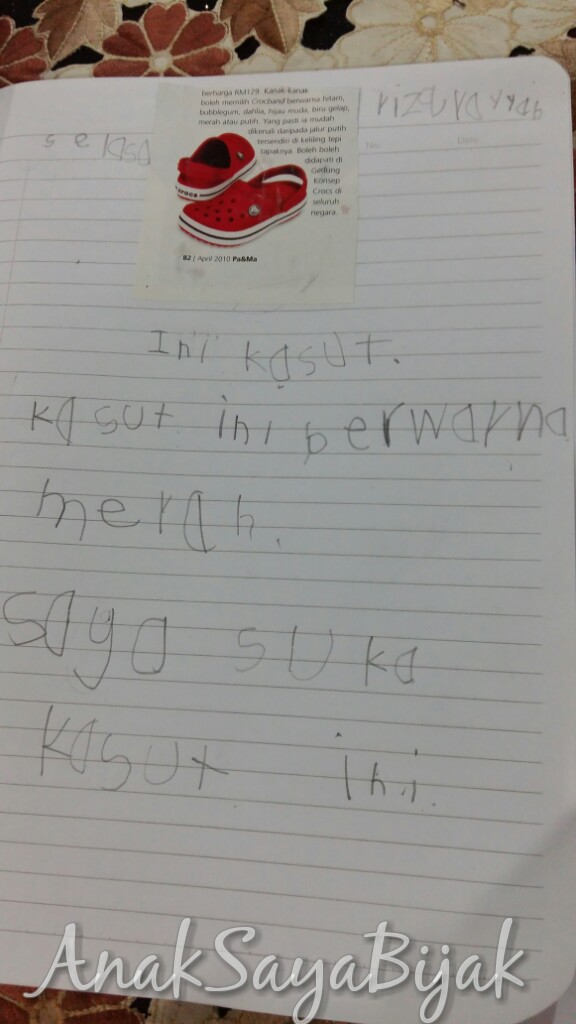 berharga RM129. Kanak-kanak
boleh memilih Crocband berwarna hitam,
bubblegum, dahlia, hijau muda, biru gelap,
merah atau putih. Yang pasti ia mudah
dikenali daripada jalur putih
tersendiri di keliling tepi
tapaknya. Boleh boleh
didapati di
Gedung
Konsep
Crocs di
seluruh
negara.
crocs
82 | April 2010 Pa&Ma
No.
Date
Ini kasut.
kasut ini berwarna
merah.
Saya suka
kasut ini.
AnakSayaBijak